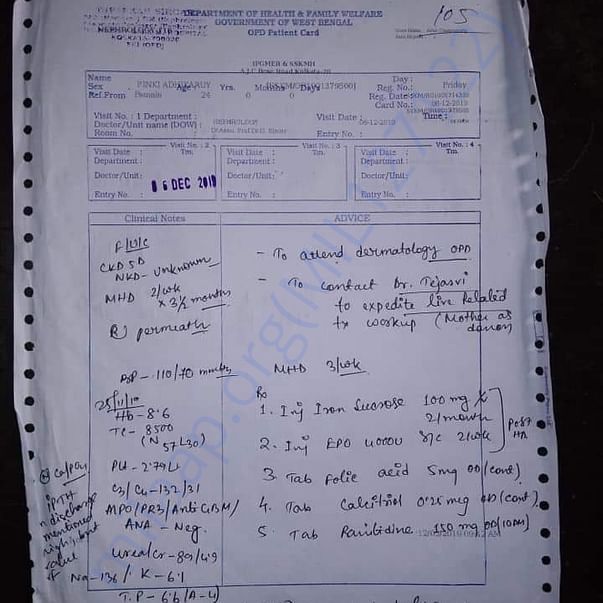 DEPARTMENT OF HEALTH & FAMILY WELFARE
GOVERNMENT OF WEST BENGAL
OPD Patient Card
105
IPGMER & SSKMH
A.J.C Bose Road Kolkata-20
Name PINKI Day :
Sex Age Yrs. Months Days Reg. No.: Friday
Ref.From Female 24 0 0 Reg. Date
Card No.: 06-12-2019
Visit No. : 1 Department : NEPHROLOGY Visit Date : 06-12-2019 Time :
Doctor/Unit name [DOW] :
Room No. Entry No. :
Visit No. : 2 Visit No. : 3 Visit No. : 4
Visit Date : Tm. Visit Date : Tm. Visit Date : Tm.
Department : Department : Department :
Doctor/Unit: Doctor/Unit: Doctor/Unit:
06 DEC 2019
Entry No. : Entry No. : Entry No. :
Clinical Notes ADVICE
F/U/C
CKD 5D
NKD - Unknown
MHD 2/wk
x 3 1/2 months
(R) permcath
BP - 110/70 mmHg
25/11/19
Hb - 8.6
TC - 8500
(N 57 L30)
Plt - 2.79L
C3/C4 - 132/31
MPO/PR3/Anti GBM/
ANA - Neg.
Urea/Cr - 89/4.9
Na - 136 / K - 6.1
T.P - 6.6 (A-4)
iPTH
discharge
mentioned
value
- To attend dermatology OPD
- To contact Dr. Tejasvi
to expedite live Related
tx workup (Mother as
donor)
MHD 3/wk
Rx
1. Inj Iron Sucrose 100 mg
2/month
2. Inj EPO 4000U S/C 2/wk
Post
HD
3. Tab Folic acid 5mg OD (cont)
4. Tab Calcitriol 0.25 mcg OD (cont)
5. Tab Ranitidine 150 mg OD (10 AM)
milaap.org